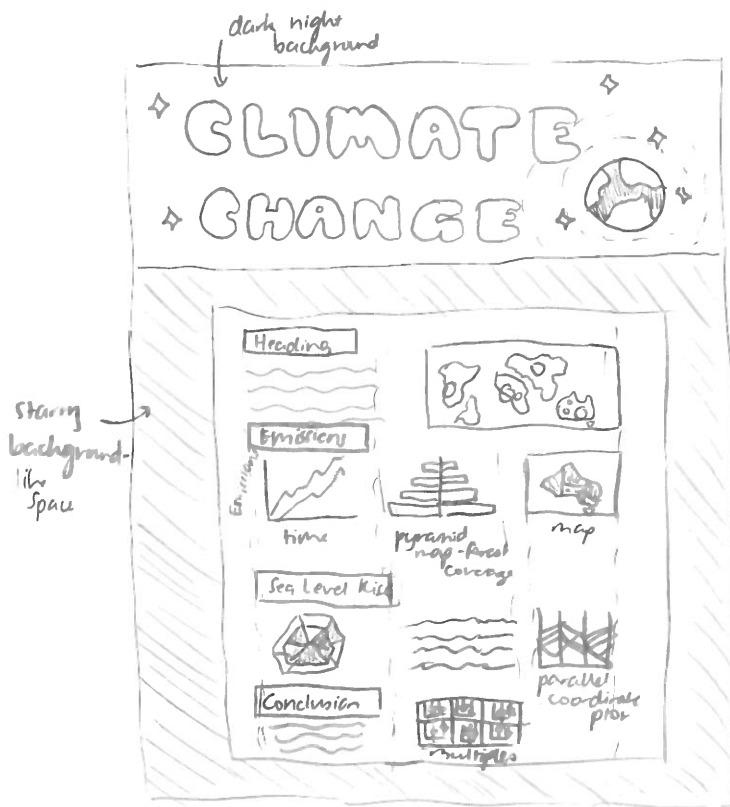 dark night
background
CLIMATE
CHANGE
Heading
starry
background-
like
space
Emissions
Emissions
time
pyramid
map - forest
coverage
map
Sea Level Rise
parallel
coordinate
plot
Conclusion
multiples